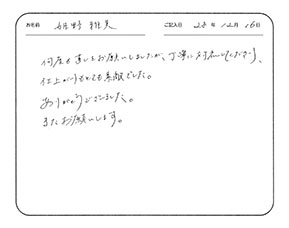 お名前 雅美 ご記入日 24年12月16日
何度も直しをお願いしましたが、丁寧に対応してくださり、
仕上がりもとても素敵でした。
ありがとうございました。
またお願いします。